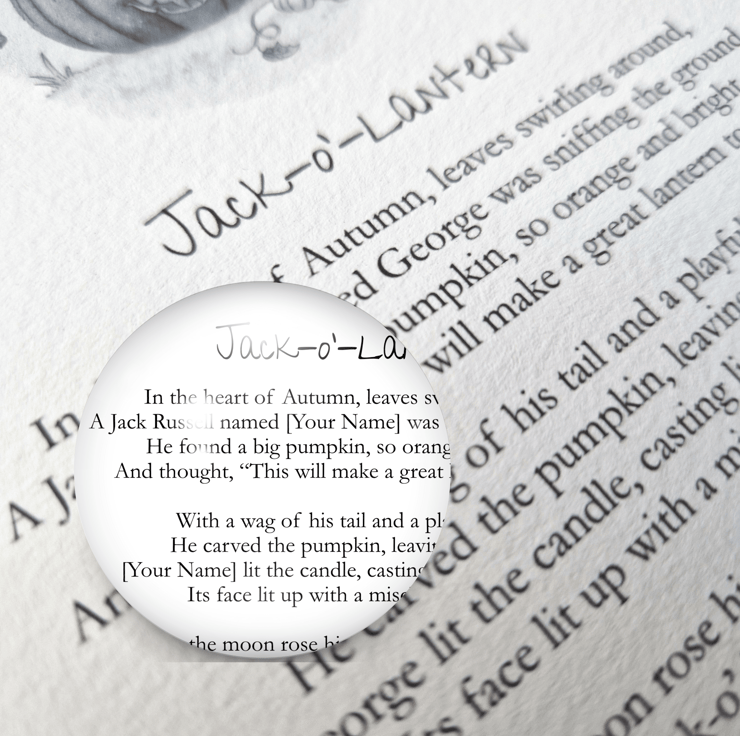 Jack-o'-Lantern
In f Autumn, leaves swirling around,
A Ja ed George was sniffing the ground
umpkin, so orange and bright
An will make a great lantern to
g of his tail and a playfu
He carved the pumpkin, leaving
eorge lit the candle, casting li
ts face lit up with a mi
oon rose hi
k-o'
Jack-o'-La
In the heart of Autumn, leaves sw
A Jack Russell named [Your Name] was
He found a big pumpkin, so orang
And thought, “This will make a great l
With a wag of his tail and a pl
He carved the pumpkin, leavin
[Your Name] lit the candle, casting
Its face lit up with a misc
the moon rose hi